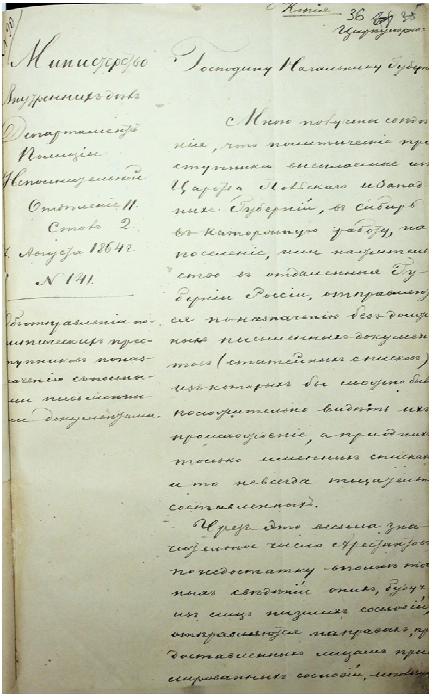 Копія
36
Циркулярно.
Министерство
Внутреннихъ дѣлъ
Департаментъ
Полиціи
Исполнительной
Отдѣленіе II.
Столъ 2.
Августа 1864 г.
№ 141.
Объ отправленіи по-
литическихъ прес-
тупниковъ по наз-
наченію съ
ми письменны-
ми документами.
Господину Начальнику Губерн
Мною получены свѣдѣ
нія, что политическіе пре
ступники высылаемые изъ
Царства Польскаго и Запад
ныхъ Губерній, въ Сибирь
въ каторжную работу, на
поселеніе, или на житель
ство въ отдаленныя Гу-
берніи Россіи, отправляют
ся по назначенію безъ долж
ныхъ письменныхъ докумен
товъ (статейныхъ списковъ)
изъ которыхъ бы можно было
положительно видѣть ихъ
происхожденіе, а при
только именныхъ спискахъ
и то не всегда тщательно
составленныхъ.
Чрезъ это весьма зна
чительное число Арестантовъ
по недостатку вполнѣ точ
ныхъ свѣдѣній о нихъ, будучи
изъ лицъ низшихъ сословій,
отправляются на правахъ, пре
доставленныхъ лицамъ приви
легированныхъ сословій,